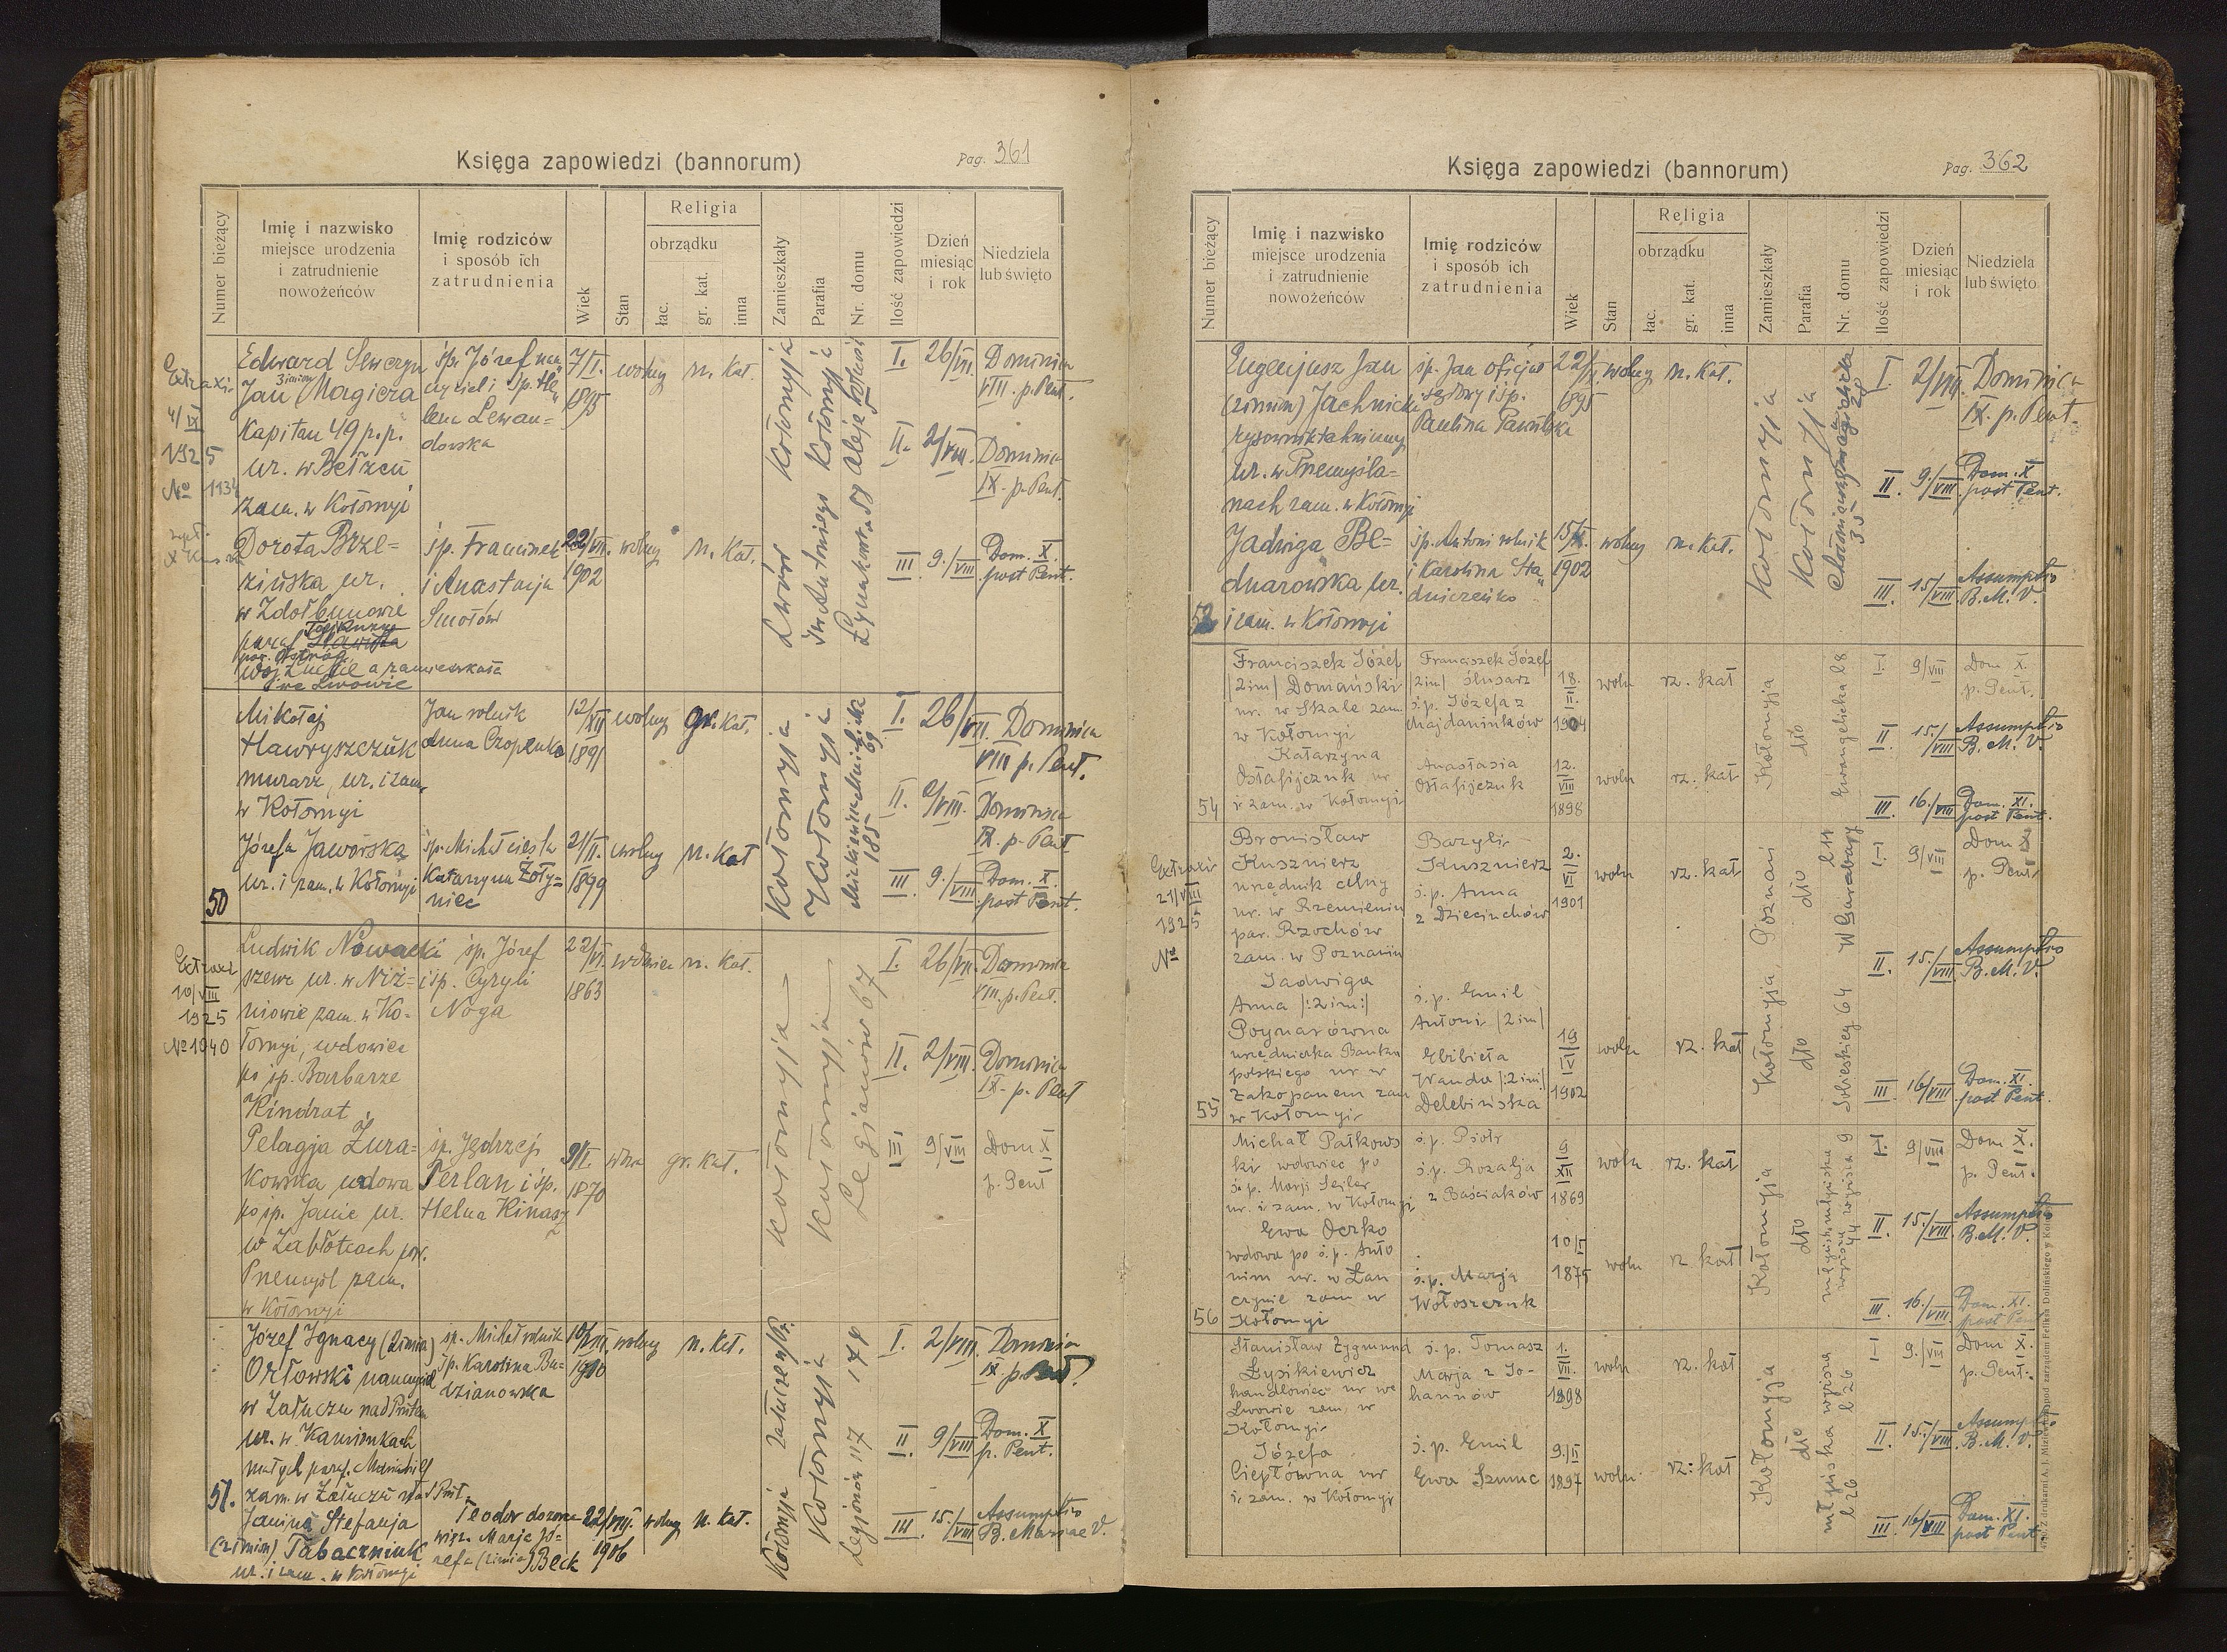 Księga zapowiedzi (bannorum)
Pag. 361
Numer bieżący
Imię i nazwisko
miejsce urodzenia
i zatrudnienie
nowożeńców
Imię rodziców
i sposób ich
zatrudnienia
Wiek
Stan
Religia
obrządku
łac.
gr. kat.
inna
Zamieszkały
Parafia
Nr. domu
Ilość zapowiedzi
Dzień
miesiąc
i rok
Niedziela
lub święto
Extraxi
4/IX
1925
No 1134
Edward Seweryn
Jan 3 imion Magiera
Kapitan 49 p.p.
ur. w Bełżcu
zam. w Kołomyi
śp. Józef nau
czyciel i śp. He
lena Lewan=
dowska
7/I.
1895
wolny
rz. Kat.
Kołomyja
Kołomyja
I. 26/VII. Dominica
VIII. p. Pent.
II. 2/VIII. Dominica
IX. p. Pent.
III 9./VIII Dom. X.
post Pent.
Dorota Brze=
zińska ur.
w Zdołbunowie
a zamieszkała
we Lwowie
śp. Franciszek
i Anastazja
Smołów
22/VII.
1902
wolny
rz. Kat.
Lwów
św. Antoniego
50
Mikołaj
Hawryszczuk
murarz, ur. i zam.
w Kołomyi
Jan rolnik
Anna Czopenko
12/XII
1891
wolny
gr. Kat.
Kołomyja
Kołomyja
185
69
I. 26/VII. Dominica
VIII p. Pent.
II. 2/VIII. Dominica
IX. p. Pent
III 9./VIII Dom. X.
post Pent.
Józefa Jaworska
ur. i zam. w Kołomyi
śp. Michał cieśla
Katarzyna Żoły=
niec
21/II.
1899
wolny
rz. Kat
Extraxi
10/VIII
1925
No 1040
Ludwik Nowacki
szewc ur. w Niż=
niowie zam. w Ko=
łomyi, wdowiec
po śp. Barbarze
Kindrat
śp. Józef
i śp. Cyryli
Noga
22/VI.
1863
wdowiec
rz. Kat.
Kołomyja
Kołomyja
Legionów 67
I. 26/VII. Dominica
VIII. p. Pent.
II. 2/VIII. Dominica
IX. p. Pent
III 9/VIII Dom X
p. Pent
Pelagja Żura=
kowska wdowa
po śp. Janie ur.
w Zabłotcach pow.
Przemyśl zam.
w Kołomyi
śp. Jędrzej
Perlan i śp.
Helena Kinasz
9/I.
1870
wdowa
gr. Kat.
51.
Józef Ignacy (2 imion)
Orłowski nauczyciel
w Załuczu nad Prutem
ur. w Kamionkach
małych
zam. w Załuczu nad Prut.
śp. Michał rolnik
śp. Karolina Bu=
dzianowska
10/VIII.
1900
wolny
rz. Kat.
Załucze n/Pr.
174
I. 2/VIII. Dominica
IX. p. Pent.
II 9/VIII Dom. X
p. Pent.
III 15./VIII Assumptio
B. Mariae V.
Janina Stefanja
(2 imion) Tabaczniuk
ur. i zam. w Kołomyi
Teodor dozorca
więz. Marja Jó=
zefa (2 imion) Beck
22/VIII.
1906
wolny
rz. Kat.
Kołomyja
Kołomyja
Legionów 117
Księga zapowiedzi (bannorum)
Pag. 362
Numer bieżący
Imię i nazwisko
miejsce urodzenia
i zatrudnienie
nowożeńców
Imię rodziców
i sposób ich
zatrudnienia
Wiek
Stan
Religia
obrządku
łac.
gr. kat.
inna
Zamieszkały
Parafia
Nr. domu
Ilość zapowiedzi
Dzień
miesiąc
i rok
Niedziela
lub święto
Eugenjusz Jan
(2 imion) Jachnicki
rysownik techniczny
ur. w Przemyśla=
nach zam. w Kołomyi
śp. Jan oficjał
sądowy i śp.
Paulina Pawulska
22/
1895
wolny
rz. Kat.
Kołomyja
Kołomyja
I. 2/VIII. Dominica
IX. p. Pent.
II 9./VIII Dom. X
post Pent.
III. 15/VIII Assumptio
B. M. V.
Jadwiga Be=
dnarowska ur.
i zam. w Kołomyi
śp. Antoni rolnik
i Karolina Sta
dniczeńko
15/
1902
wolny
rz. Kat.
54
Franciszek Józef
/2 im/ Domański
ur. w Skale zam.
w Kołomyi
Franciszek Józef
/2 im/ ślusarz
ś.p. Józefa z
Majdaników
18.
II.
1904
woln
rz. kat
Kołomyja
dto
Ewangelicka 28
I. 9/VIII Dom X.
p. Pent.
II 15./VIII Assumptio
B. M. V.
III 16./VIII Dom. XI.
post Pent.
Katarzyna
Ostafijczuk ur
i zam. w Kołomyi
Anastasia
Ostafijczuk
12.
VIII
1898
woln
rz. kat
Extraxi
21/VIII
1925
No
55
Bronisław
Kusznierz
urzędnik
ur. w Rzemieniu
par. Rzochów
zam. w Poznaniu
Bazyli
Kusznierz
ś.p. Anna
z Dziecinchów
2.
VI
1901
woln
rz. kat
Poznań
dto
I. 9/VIII Dom X
p. Pent.
II. 15./VIII Assumptio
B. M. V.
III 16/VIII Dom. XI.
post Pent.
Jadwiga
Anna /:2 im:/
Poynarówna
urzędniczka Banku
polskiego ur w
Zakopanem zam
w Kołomyi
ś.p. Emil
Antoni /2 im/
Elżbieta
Wanda /:2 im/
Delebińska
19
IV
1902
woln
rz. kat
Kołomyja
dto
Sobieskiego 64
56
Michał Pałkows
ki wdowiec po
ś.p. Marji Sejler
ur. i zam. w Kołomyi
ś.p. Piotr
ś.p. Rozalja
z Baściaków
9
XII
1869
woln
rz. kat
Kołomyja
dto
I. 9/VIII Dom X.
p. Pent.
II 15./VIII Assumptio
B. M. V.
III 16./VIII Dom. XI.
post Pent
Ewa Derko
wdowa po ś.p. Anto
nim ur. w Łan
czynie zam w
Kołomyi
ś.p. Marja
Wołoszczuk
10/I
1875
woln
rz kat
Stanisław Zygmund
Łysikiewicz
handlowiec ur we
Lwowie zam. w
Kołomyi
ś.p. Tomasz
Marja z Jo-
hannów
1.
VII.
1898
woln
rz. kat
Kołomyja
dto
I 9./VIII Dom X.
p. Pent.
II 15./VIII. Assumptio
B. M. V.
III 16/VIII Dom. XI.
post Pent
Józefa
Ciepłówna ur
i zam. w Kołomyi
ś.p. Emil
Ewa Szmuc
9./II
1897
woln
rz: kat